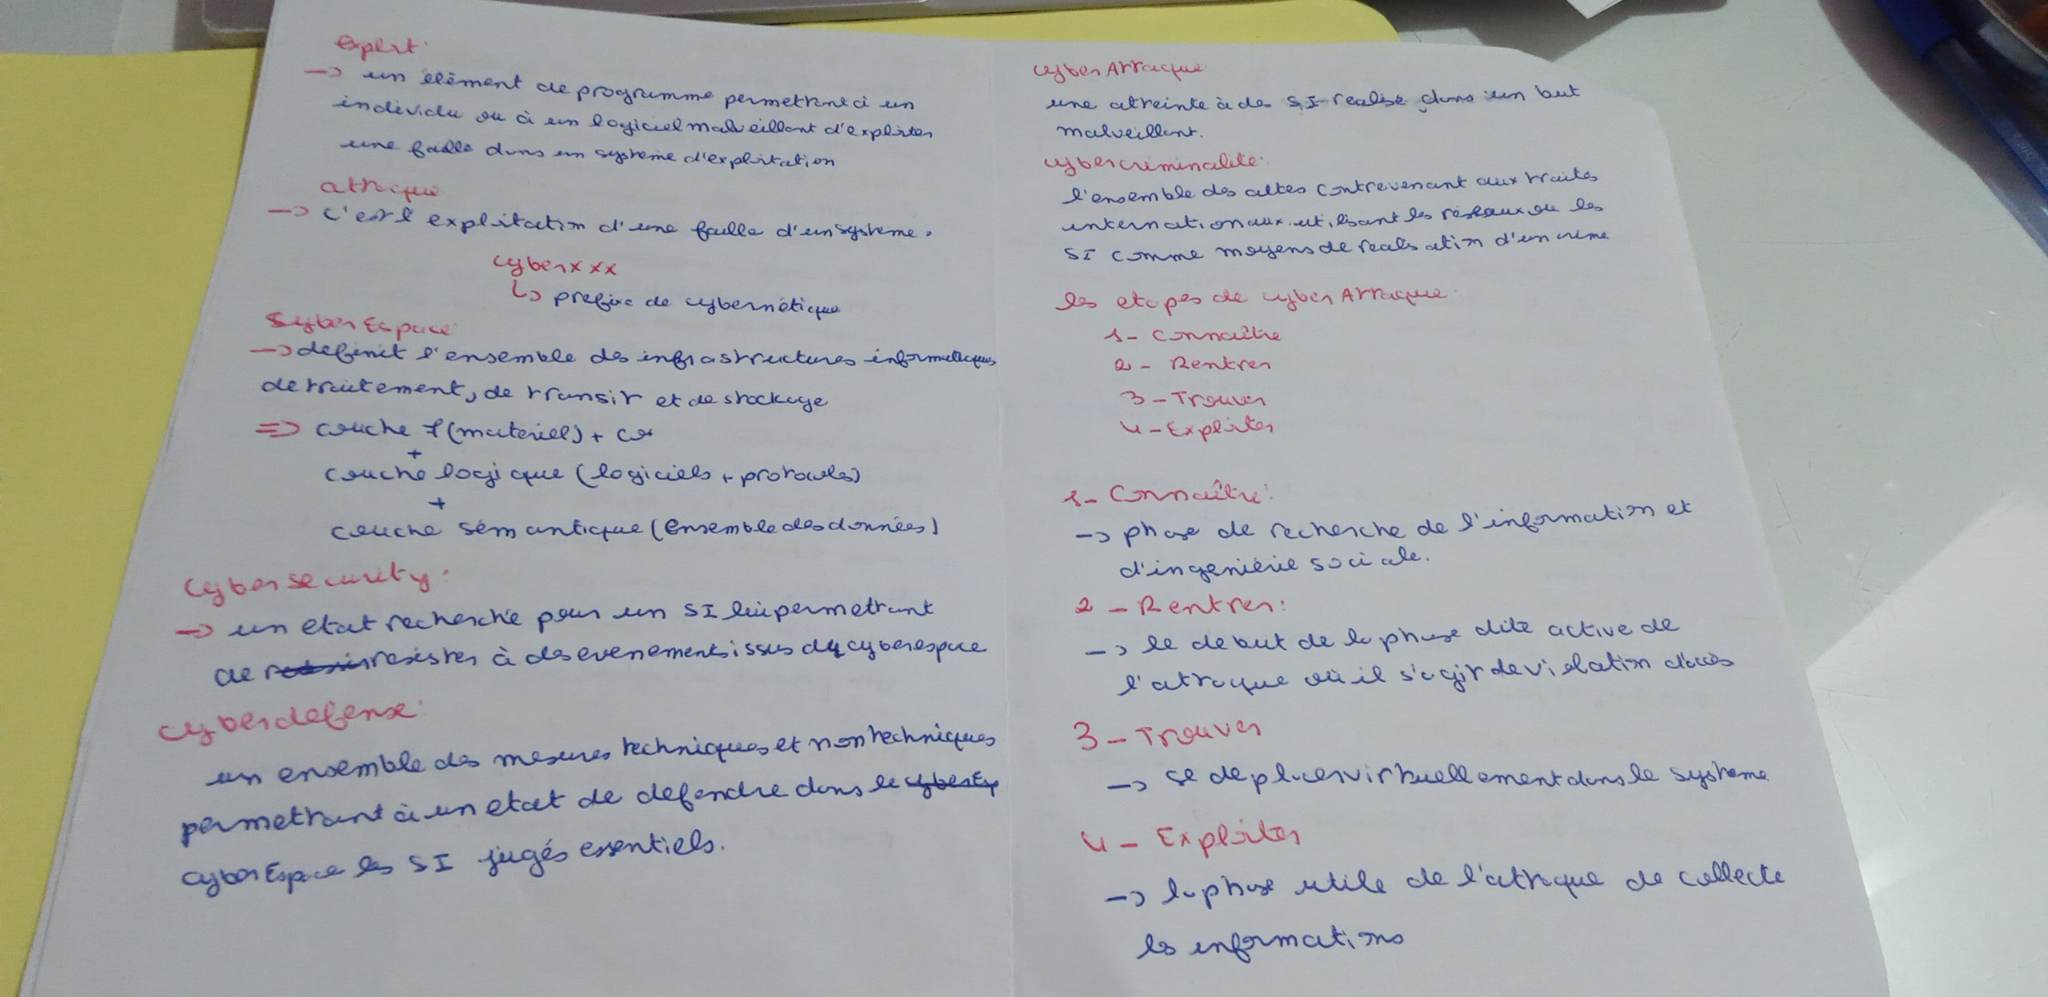 exploit:
→ un élément de programme permettant à un
individu ou à un logiciel malveillant d'exploiter
une faille dans un système d'exploitation
attaque
→ C'est l'exploitation d'une faille d'un système.
cyberxxx
↳ prefixe de cybernétique
CyberEspace
→ definit l'ensemble des infrastructures informatiques
de traitement, de transit et de stockage
⇒ couche (materiel) +
+
couche logique (logiciels + protocoles)
+
couche sémantique (Ensemble des données)
Cybersecurity.
→ un etat recherché pour un SI lui permettant
de resister à des evenements issus du cyberespace
Cyberdefense:
un ensemble des mesures techniques et non techniques
permettant à un etat de defendre dans le
cyberEspace les SI jugés essentiels.
CyberAttaque
une atteinte à des SI realisé dans un but
malveillant.
Cybercriminalité:
l'ensemble des actes contrevenant aux traités
internationaux utilisant les réseaux ou les
SI comme moyens de realisation d'un crime
les etapes de cyberAttaque
1- Connaître
2- Rentrer
3- Trouver
4- Exploiter
1- Connaître:
→ phase de recherche de l'information et
d'ingeniérie sociale.
2- Rentrer:
→ le debut de la phase dite active de
l'attaque où il s'agit de violation d'accès
3- Trouver
→ se deplacer virtuellement dans le système
4- Exploiter
→ la phase utile de l'attaque de collecte
les informations